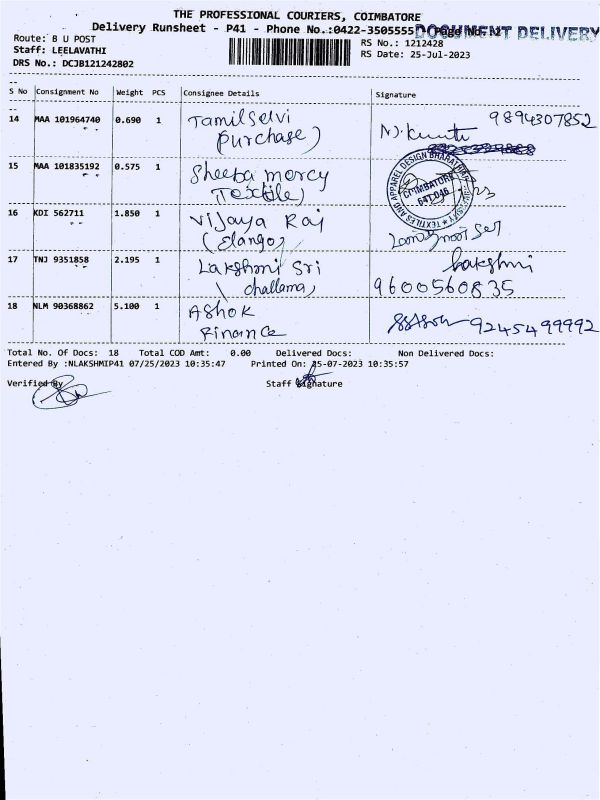 THE PROFESSIONAL COURIERS, COIMBATORE
Delivery Runsheet - P41 - Phone No.:0422-3505555 Page No. 2
DOCUMENT DELIVERY
Route: B U POST
Staff: LEELAVATHI
DRS No.: DCJB121242802
RS No.: 1212428
RS Date: 25-Jul-2023
S No Consignment No Weight PCS Consignee Details Signature
14 MAA 101964740 0.690 1 Tamilselvi 9894307852
purchase)
15 MAA 101835192 0.575 1 Sheeba mercy
(Textile)
TEXTILES AND APPAREL DESIGN BHARATHIAR UNIVERSITY
COIMBATORE
641 046
16 KDI 562711 1.850 1 Vijaya Raj
(Elango)
17 TNJ 9351858 2.195 1 Lakshmi Sri Lakshmi
challama) 9600560835
18 NLM 90368862 5.100 1 Ashok
Finance 9245499992
Total No. Of Docs: 18 Total COD Amt: 0.00 Delivered Docs: Non Delivered Docs:
Entered By :NLAKSHMIP41 07/25/2023 10:35:47 Printed On: 25-07-2023 10:35:57
Verified By Staff Signature